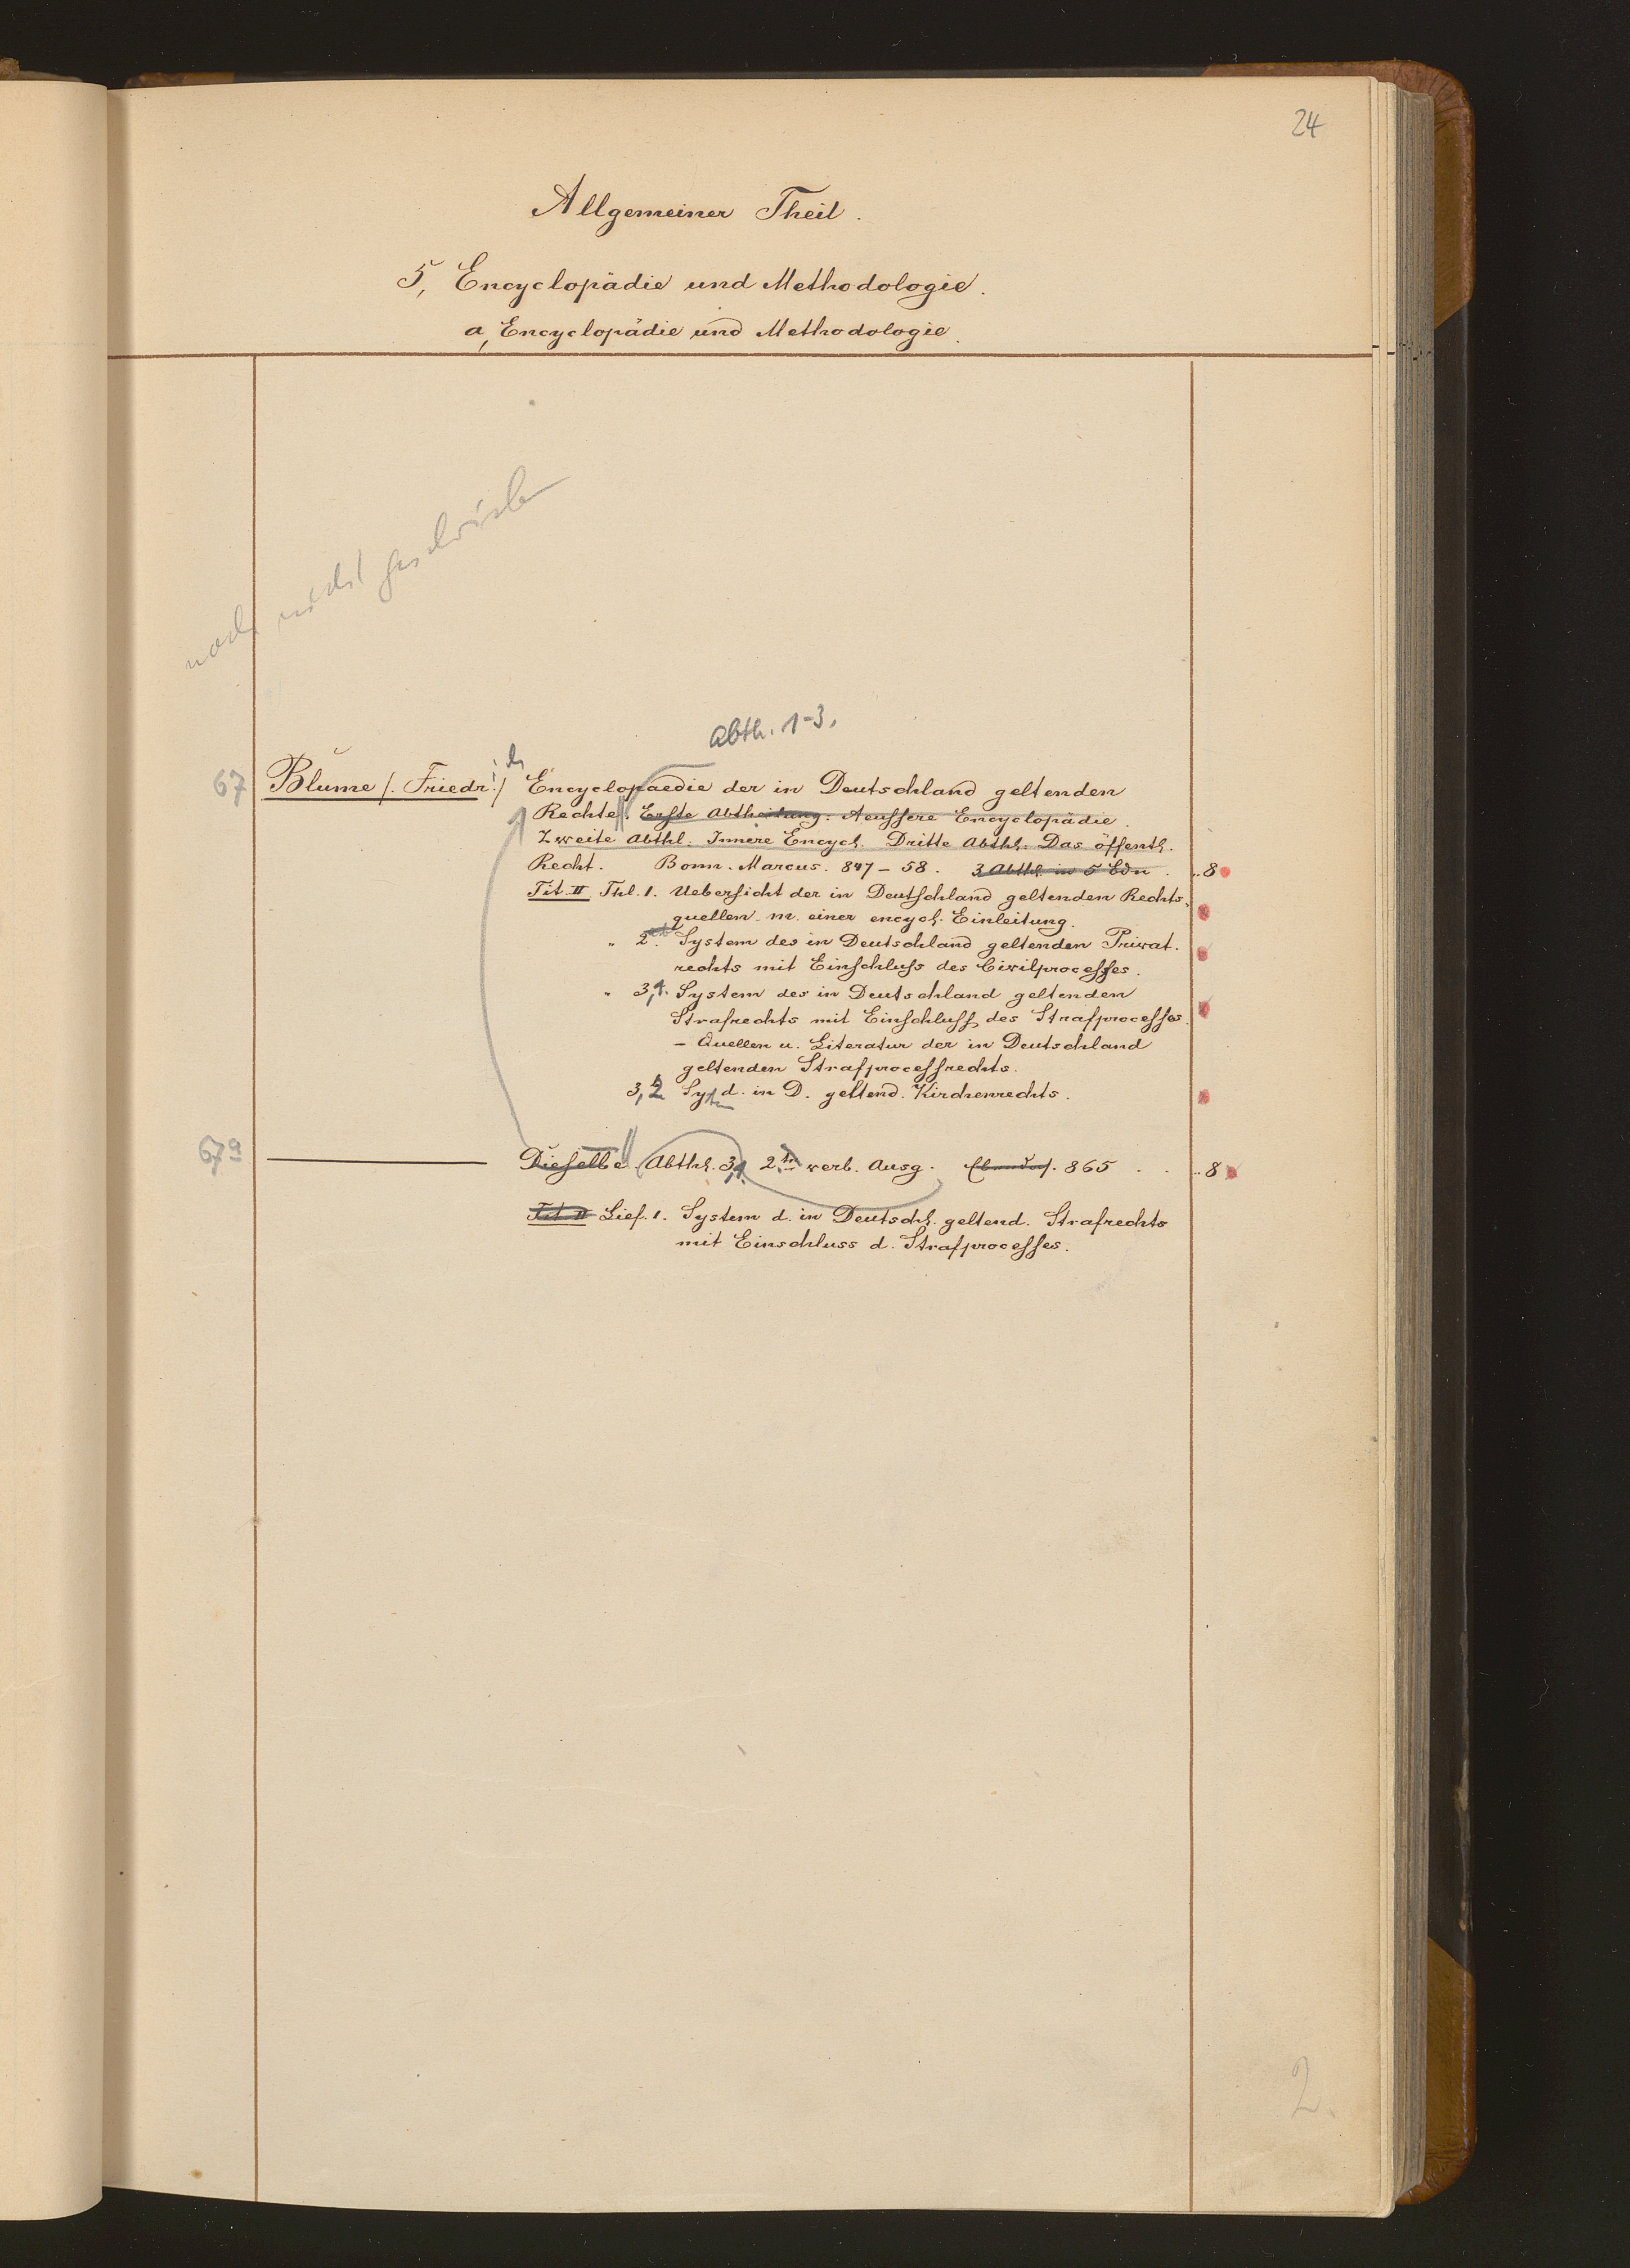 24
Allgemeiner Theil.
5, Encyclopädie und Methodologie.
a, Encyclopädie und Methodologie.
noch nicht geschrieben
Abth. 1-3.
67 Blume /. Friedrich./ Encyclopaedie der in Deutschland geltenden
Rechte. Erste Abtheilung: Aeussere Encyclopädie.
Zweite Abthl. Innere Encycl. Dritte Abthl. Das öffentl.
Recht. Bonn. Marcus. 847-58. 3 Abthl. in 5 Bdn. ..8
Tit. II Thl. 1. Uebersicht der in Deutschland geltenden Rechts-
quellen m. einer encycl. Einleitung.
" 2. System des in Deutschland geltenden Privat-
rechts mit Einschluss des Civilprocesses.
" 3,1. System des in Deutschland geltenden
Strafrechts mit Einschluss des Strafprocesses.
- Quellen u. Literatur der in Deutschland
geltenden Strafprocessrechts.
3,2 Syst. d. in D. geltend. Kirchenrechts.
67a Dieselbe Abthl. 3,1. 2te verb. Ausg. Ebendas. 865 . . ..8
Tit. II Lief. 1. System d. in Deutschl. geltend. Strafrechts
mit Einschluss d. Strafprocesses.
2.